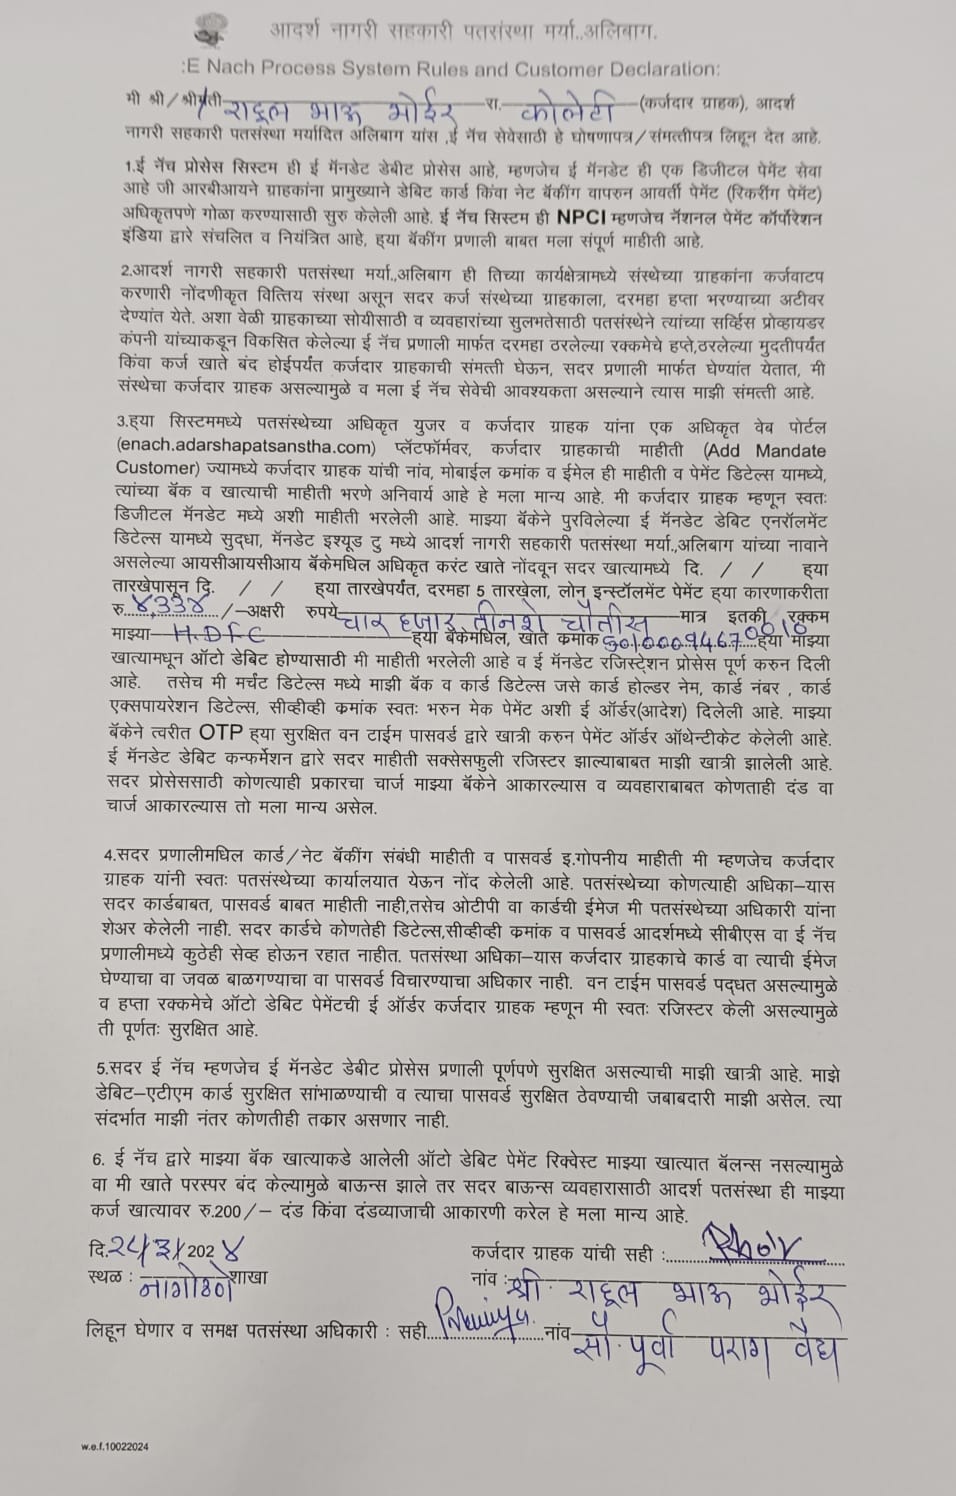 आदर्श नागरी सहकारी पतसंस्था मर्या..अलिबाग.
:E Nach Process System Rules and Customer Declaration:
मी श्री/श्रीमती राहूल भाऊ भोईर रा. कोलेटी (कर्जदार ग्राहक), आदर्श
नागरी सहकारी पतसंस्था मर्यादित अलिबाग यांस ,ई नॅच सेवेसाठी हे घोषणापत्र/संमत्तीपत्र लिहून देत आहे.
1.ई नॅच प्रोसेस सिस्टम ही ई मॅनडेट डेबीट प्रोसेस आहे, म्हणजेच ई मॅनडेट ही एक डिजीटल पेमेंट सेवा
आहे जी आरबीआयने ग्राहकांना प्रामुख्याने डेबिट कार्ड किंवा नेट बॅकींग वापरुन आवर्ती पेमेंट (रिकरींग पेमेंट)
अधिकृतपणे गोळा करण्यासाठी सुरु केलेली आहे. ई नॅच सिस्टम ही NPCI म्हणजेच नॅशनल पेमेंट कॉर्पोरेशन
इंडिया द्वारे संचलित व नियंत्रित आहे, हया बॅकींग प्रणाली बाबत मला संपूर्ण माहीती आहे.
2.आदर्श नागरी सहकारी पतसंस्था मर्या.,अलिबाग ही तिच्या कार्यक्षेत्रामध्ये संस्थेच्या ग्राहकांना कर्जवाटप
करणारी नोंदणीकृत वित्तिय संस्था असून सदर कर्ज संस्थेच्या ग्राहकाला, दरमहा हप्ता भरण्याच्या अटीवर
देण्यांत येते. अशा वेळी ग्राहकाच्या सोयीसाठी व व्यवहारांच्या सुलभतेसाठी पतसंस्थेने त्यांच्या सर्व्हिस प्रोव्हायडर
कंपनी यांच्याकडून विकसित केलेल्या ई नॅच प्रणाली मार्फत दरमहा ठरलेल्या रक्कमेचे हप्ते,ठरलेल्या मुदतीपर्यंत
किंवा कर्ज खाते बंद होईपर्यंत कर्जदार ग्राहकाची संमत्ती घेऊन, सदर प्रणाली मार्फत घेण्यांत येतात, मी
संस्थेचा कर्जदार ग्राहक असल्यामुळे व मला ई नॅच सेवेची आवश्यकता असल्याने त्यास माझी संमत्ती आहे.
3.हया सिस्टममध्ये पतसंस्थेच्या अधिकृत युजर व कर्जदार ग्राहक यांना एक अधिकृत वेब पोर्टल
(enach.adarshapatsanstha.com) प्लॅटफॉर्मवर, कर्जदार ग्राहकाची माहीती (Add Mandate
Customer) ज्यामध्ये कर्जदार ग्राहक यांची नांव, मोबाईल क्रमांक व ईमेल ही माहीती व पेमेंट डिटेल्स यामध्ये,
त्यांच्या बॅक व खात्याची माहीती भरणे अनिवार्य आहे हे मला मान्य आहे. मी कर्जदार ग्राहक म्हणून स्वतः
डिजीटल मॅनडेट मध्ये अशी माहीती भरलेली आहे. माझ्या बॅकेने पुरविलेल्या ई मॅनडेट डेबिट एनरॉलमेंट
डिटेल्स यामध्ये सुद्धा, मॅनडेट इश्यूड टु मध्ये आदर्श नागरी सहकारी पतसंस्था मर्या.,अलिबाग यांच्या नावाने
असलेल्या आयसीआयसीआय बॅकेमधिल अधिकृत करंट खाते नोंदवून सदर खात्यामध्ये दि. / / हया
तारखेपासून दि. / / हया तारखेपर्यंत, दरमहा 5 तारखेला, लोन इन्स्टॉलमेंट पेमेंट हया कारणाकरीता
रु. ४,३३४ /–अक्षरी रुपये चार हजार तीनशे चौतीस मात्र इतकी रक्कम
माझ्या H.DFC हया बॅकेमधिल, खाते क्रमांक हया माझ्या
खात्यामधून ऑटो डेबिट होण्यासाठी मी माहीती भरलेली आहे व ई मॅनडेट रजिस्ट्रेशन प्रोसेस पूर्ण करुन दिली
आहे. तसेच मी मर्चंट डिटेल्स मध्ये माझी बॅक व कार्ड डिटेल्स जसे कार्ड होल्डर नेम, कार्ड नंबर , कार्ड
एक्सपायरेशन डिटेल्स, सीव्हीव्ही क्रमांक स्वतः भरुन मेक पेमेंट अशी ई ऑर्डर(आदेश) दिलेली आहे. माझ्या
बॅकेने त्वरीत OTP हया सुरक्षित वन टाईम पासवर्ड द्वारे खात्री करुन पेमेंट ऑर्डर ऑथेन्टीकेट केलेली आहे.
ई मॅनडेट डेबिट कन्फर्मेशन द्वारे सदर माहीती सक्सेसफुली रजिस्टर झाल्याबाबत माझी खात्री झालेली आहे.
सदर प्रोसेससाठी कोणत्याही प्रकारचा चार्ज माझ्या बॅकेने आकारल्यास व व्यवहाराबाबत कोणताही दंड वा
चार्ज आकारल्यास तो मला मान्य असेल.
4.सदर प्रणालीमधिल कार्ड/नेट बॅकींग संबंधी माहीती व पासवर्ड इ.गोपनीय माहीती मी म्हणजेच कर्जदार
ग्राहक यांनी स्वतः पतसंस्थेच्या कार्यालयात येऊन नोंद केलेली आहे. पतसंस्थेच्या कोणत्याही अधिका–यास
सदर कार्डबाबत, पासवर्ड बाबत माहीती नाही,तसेच ओटीपी वा कार्डची ईमेज मी पतसंस्थेच्या अधिकारी यांना
शेअर केलेली नाही. सदर कार्डचे कोणतेही डिटेल्स,सीव्हीव्ही क्रमांक व पासवर्ड आदर्शमध्ये सीबीएस वा ई नॅच
प्रणालीमध्ये कुठेही सेव्ह होऊन रहात नाहीत. पतसंस्था अधिका–यास कर्जदार ग्राहकाचे कार्ड वा त्याची ईमेज
घेण्याचा वा जवळ बाळगण्याचा वा पासवर्ड विचारण्याचा अधिकार नाही. वन टाईम पासवर्ड पद्धत असल्यामुळे
व हप्ता रक्कमेचे ऑटो डेबिट पेमेंटची ई ऑर्डर कर्जदार ग्राहक म्हणून मी स्वतः रजिस्टर केली असल्यामुळे
ती पूर्णतः सुरक्षित आहे.
5.सदर ई नॅच म्हणजेच ई मॅनडेट डेबीट प्रोसेस प्रणाली पूर्णपणे सुरक्षित असल्याची माझी खात्री आहे. माझे
डेबिट–एटीएम कार्ड सुरक्षित सांभाळण्याची व त्याचा पासवर्ड सुरक्षित ठेवण्याची जबाबदारी माझी असेल. त्या
संदर्भात माझी नंतर कोणतीही तकार असणार नाही.
6. ई नॅच द्वारे माझ्या बॅक खात्याकडे आलेली ऑटो डेबिट पेमेंट रिक्वेस्ट माझ्या खात्यात बॅलन्स नसल्यामुळे
वा मी खाते परस्पर बंद केल्यामुळे बाऊन्स झाले तर सदर बाऊन्स व्यवहारासाठी आदर्श पतसंस्था ही माझ्या
कर्ज खात्यावर रु.200/– दंड किंवा दंडव्याजाची आकारणी करेल हे मला मान्य आहे.
दि.२८/३/202४ कर्जदार ग्राहक यांची सही :
स्थळ : नागोठणे शाखा नांव : श्री. राहूल भाऊ भोईर
लिहून घेणार व समक्ष पतसंस्था अधिकारी : सही नांव सौ. पूर्वा पराग वैद्य
w.e.f.10022024